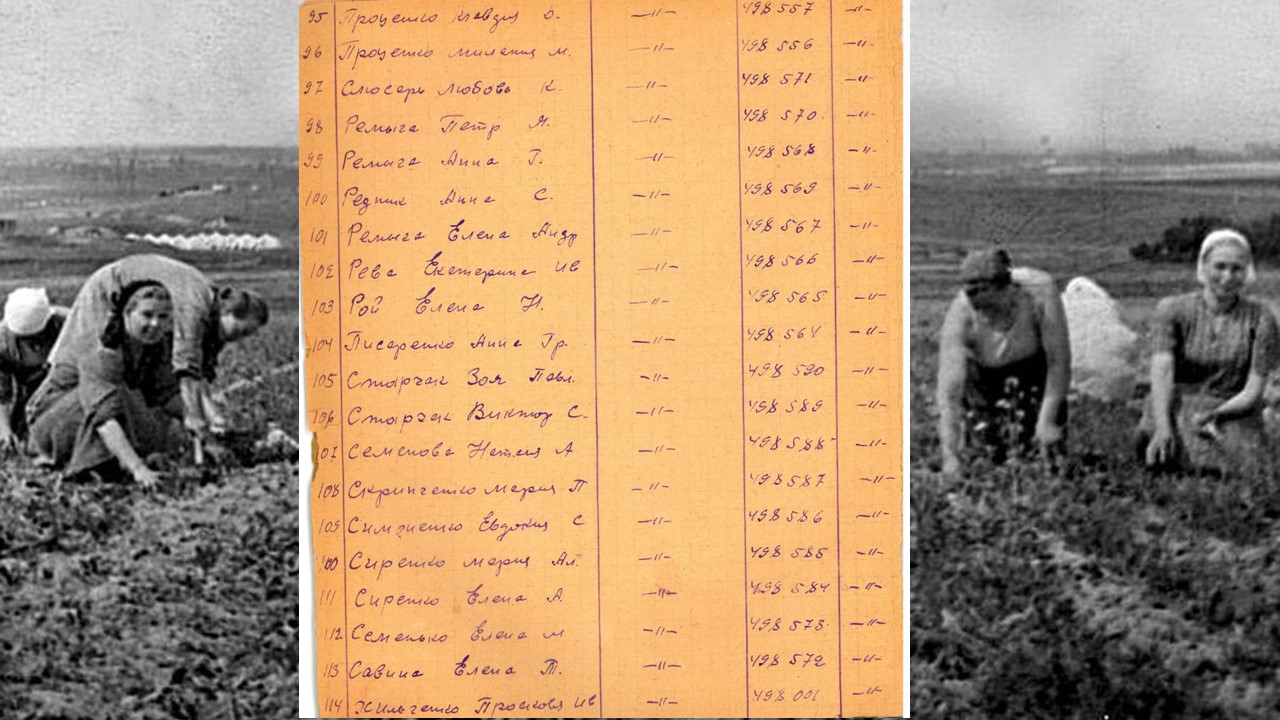 95 Проценко Клавдия О. —"— 498 557 —"—
96 Проценко Милания М. —"— 498 556 —"—
97 Слюсарь Любовь К. —"— 498 571 —"—
98 Ремыга Петр Я. —"— 498 570. —"—
99 Ремыга Анна Г. —"— 498 568 —"—
100 Редник Анна С. —"— 498 569 —"—
101 Ремыга Елена Андр —"— 498 567 —"—
102 Рева Екатерина Ив —"— 498 566 —"—
103 Рой Елена Н. —"— 498 565 —"—
104 Писаренко Анна Гр. —"— 498 564 —"—
105 Старчак Зоя Павл. —"— 498 590 —"—
106 Старчак Виктор С. —"— 498 589 —"—
107 Семенова Наталия А —"— 498 588 —"—
108 Скринченко Мария П —"— 498 587 —"—
109 Евдокия С —"— 498 586 —"—
100 Сиренко Мария Ал. —"— 498 585 —"—
111 Сиренко Елена А. —"— 498 584 —"—
112 Семенько Елена М —"— 498 573. —"—
113 Савина Елена Т. —"— 498 572 —"—
114 Хильченко Просковя Ив —"— 498 001 —"—